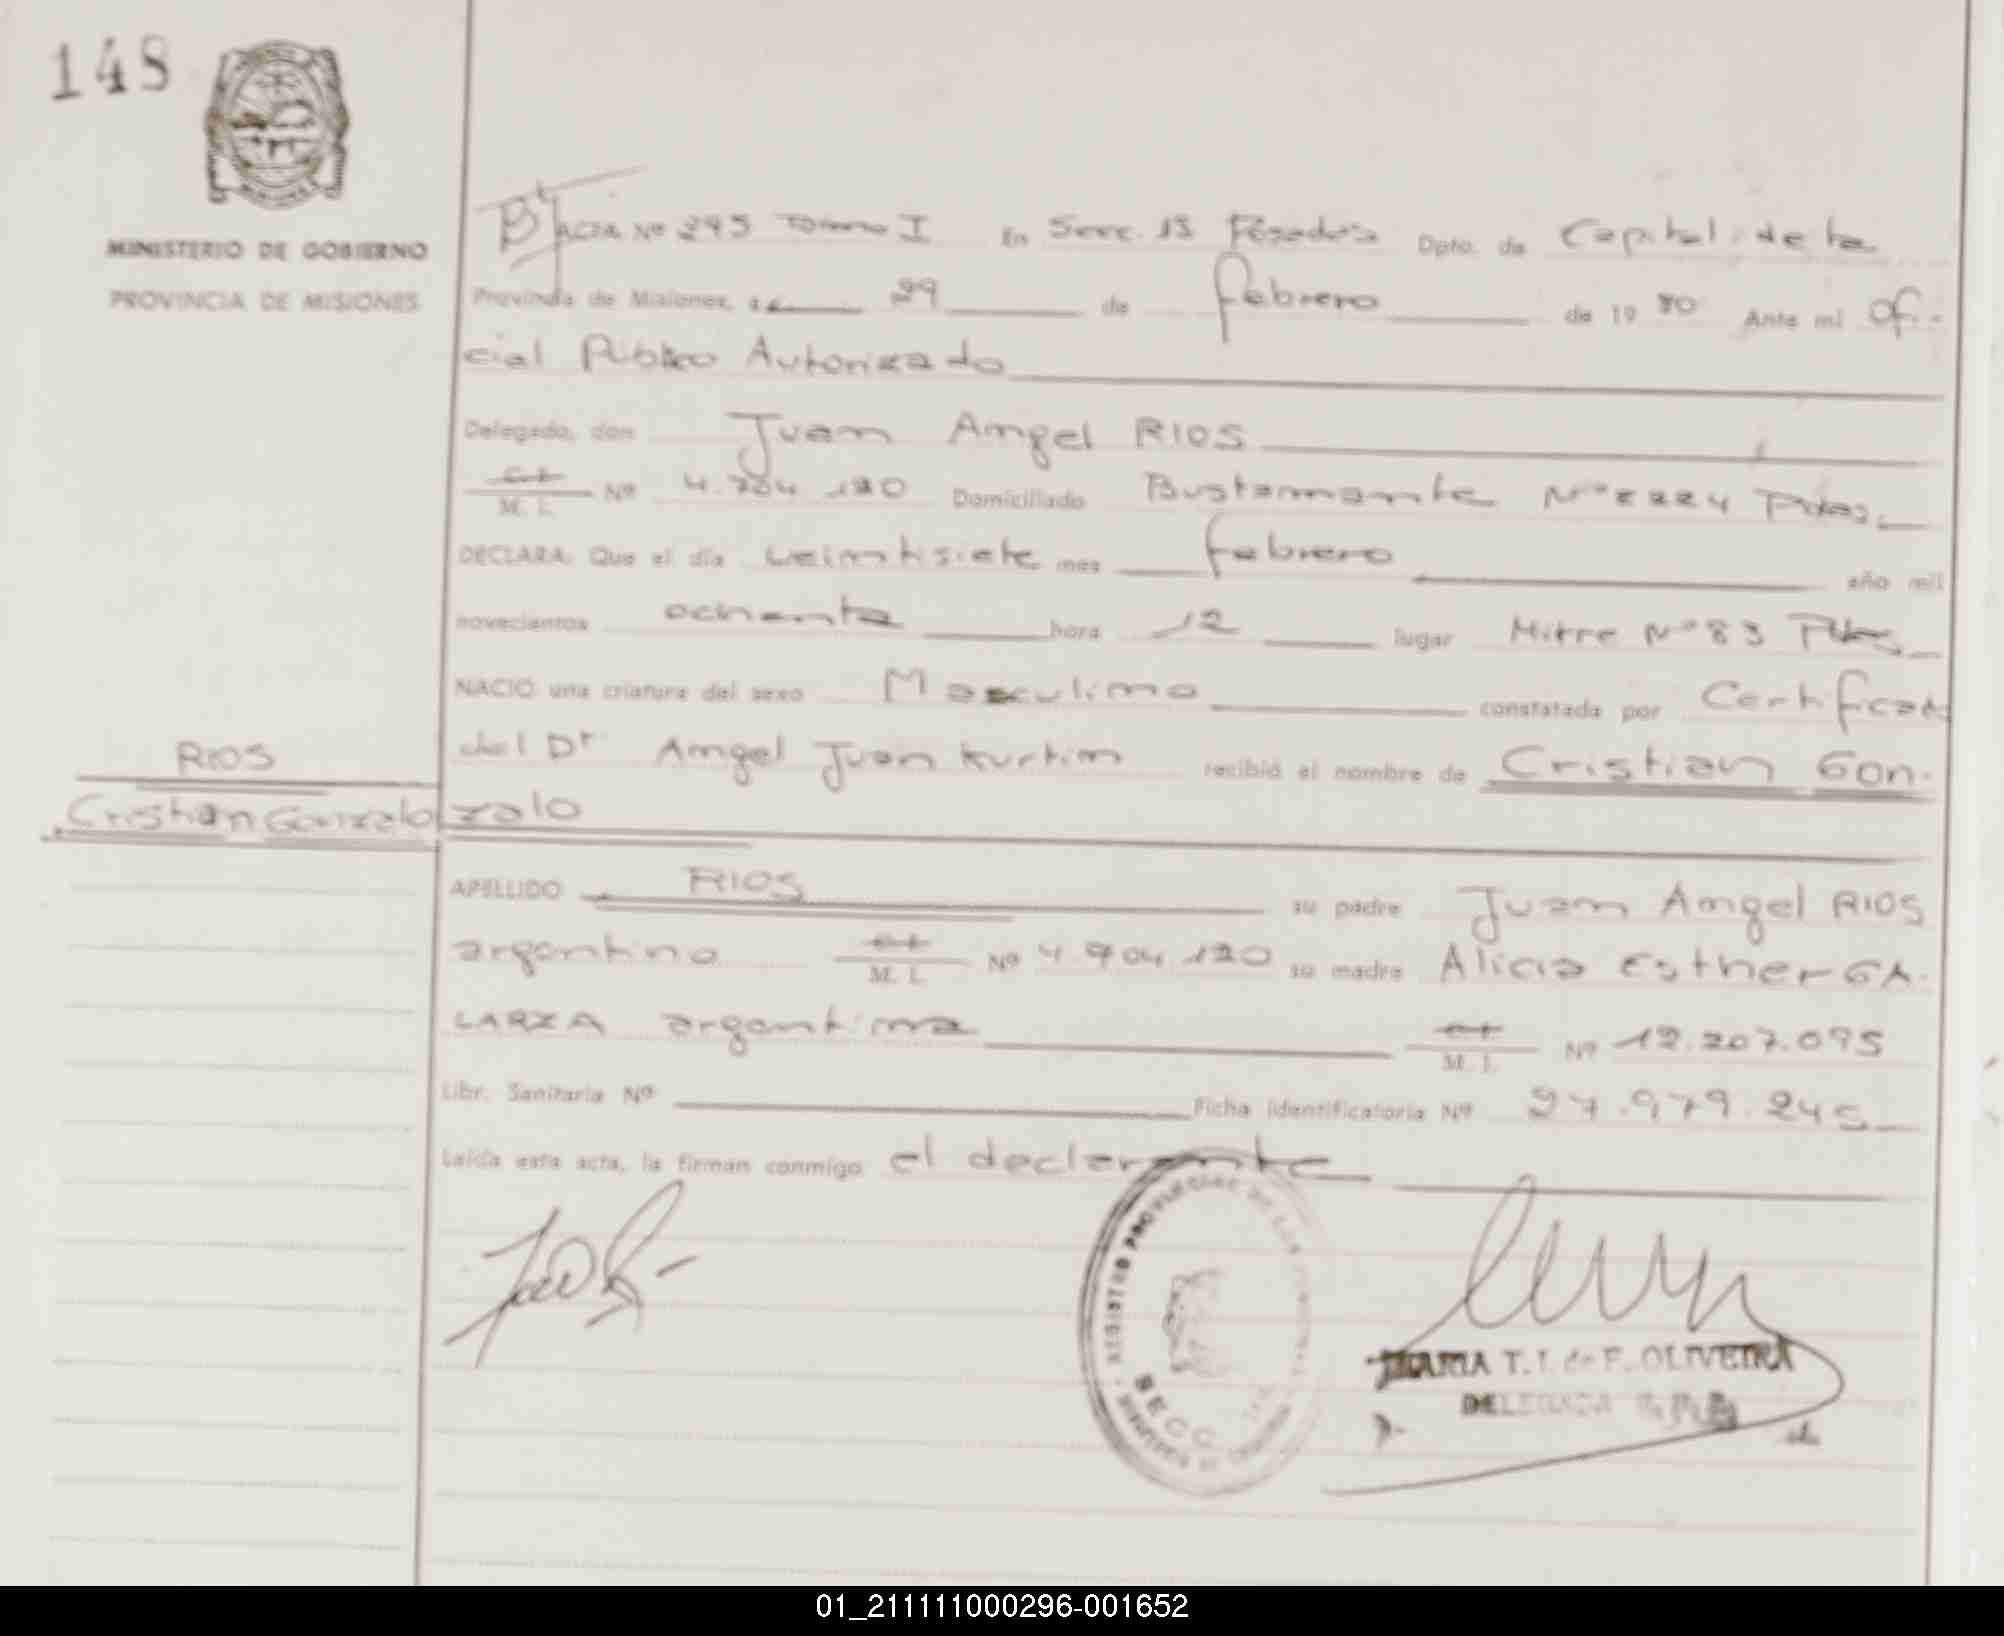 148
MINISTERIO DE GOBIERNO
PROVINCIA DE MISIONES
ACTA Nº 295 Tomo I En Secc. 1S Posadas Dpto. de Capital de la
Provincia de Misiones, a 29 de febrero de 19 80 Ante mi Ofi-
cial Público Autorizado
Delegado, don Juan Angel RIOS
M. I. Nº 4.704.120 Domiciliado Bustamante Nº 2224 Pdas.
DECLARA: Que el día veintisiete mes febrero año mil
novecientos ochenta hora 12 lugar Mitre Nº 83 Pdas.
NACIO una criatura del sexo Masculino constatada por Certificado
del Dr Angel Juan Kurtin recibió el nombre de Cristian Gon-
zalo
RIOS
Cristian Gonzalo
APELLIDO RIOS su padre Juan Angel RIOS
argentino M. I. Nº 4.704.120 su madre Alicia Esther GA-
LARZA argentina M. I. Nº 12.207.095
Libr. Sanitaria Nº Ficha identificatoria Nº 27.979.245
Leída esta acta, la firman conmigo el declarante
REGISTRO PROVINCIAL DE LAS
SECC.
MARIA T. I. de F. OLIVEIRA
DELEGADA
01_211111000296-001652